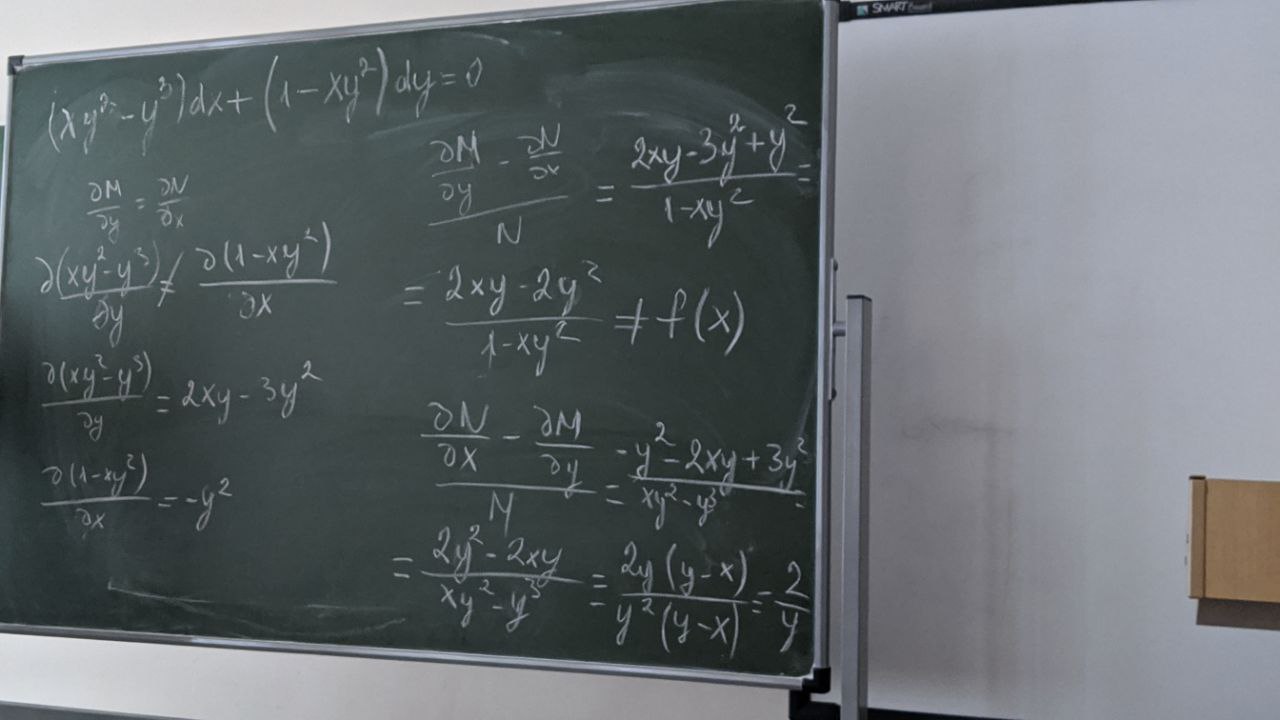 SMART Board
(xy² - y³)dx + (1 - xy²)dy = 0
∂M/∂y = ∂N/∂x
∂(xy² - y³)/∂y ≠ ∂(1 - xy²)/∂x
∂(xy² - y³)/∂y = 2xy - 3y²
∂(1 - xy²)/∂x = -y²
(∂M/∂y - ∂N/∂x)/N = (2xy - 3y² + y²)/(1 - xy²) =
= (2xy - 2y²)/(1 - xy²) ≠ f(x)
(∂N/∂x - ∂M/∂y)/M = (-y² - 2xy + 3y²)/(xy² - y³) =
= (2y² - 2xy)/(xy² - y³) = 2y(y - x)/y²(y - x) = 2/y